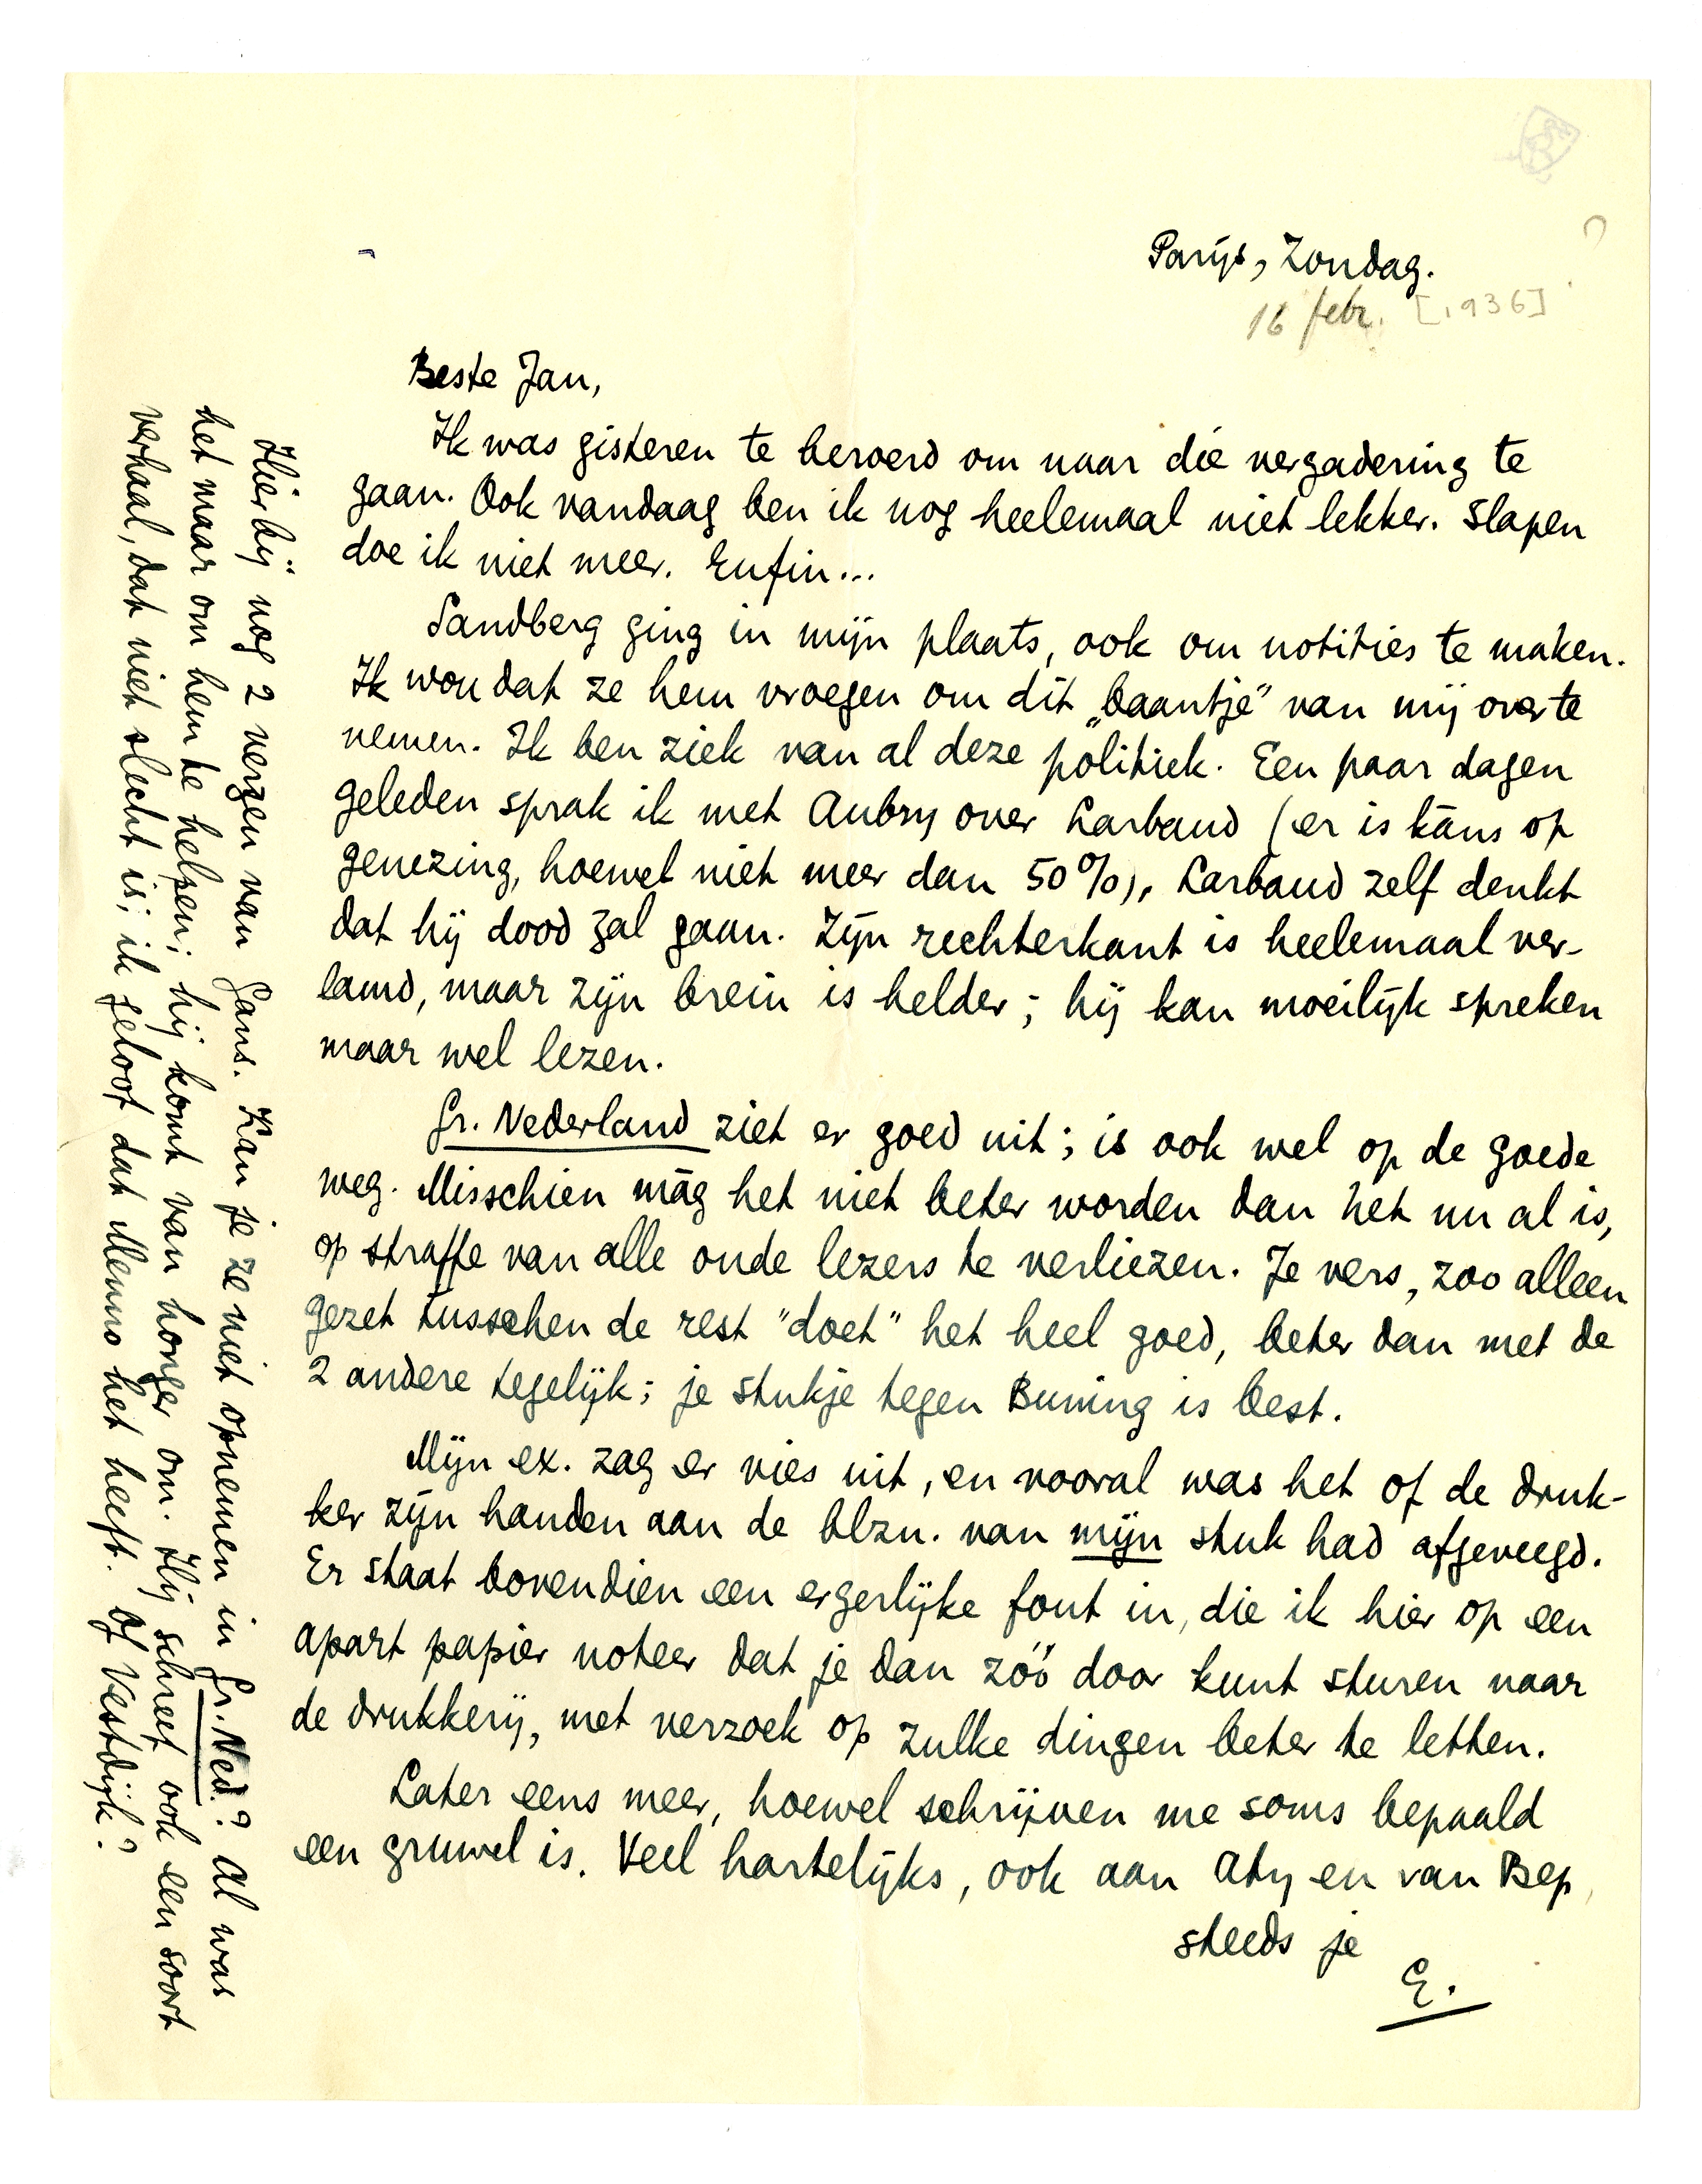 Parijs, Zondag.
16 febr. [1936]
?
Beste Jan,
Ik was gisteren te beroerd om naar die vergadering te
gaan. Ook vandaag ben ik nog heelemaal niet lekker. Slapen
doe ik niet meer. Enfin...
Sandberg ging in mijn plaats, ook om notities te maken.
Ik wou dat ze hem vroegen om dit „baantje” van mij over te
nemen. Ik ben ziek van al deze politiek. Een paar dagen
geleden sprak ik met Aubry over Larbaud (er is káns op
genezing, hoewel niet meer dan 50%), Larbaud zelf denkt
dat hij dood zal gaan. Zijn rechterkant is heelemaal ver-
lamd, maar zijn brein is helder; hij kan moeilijk spreken
maar wel lezen.
Gr. Nederland ziet er goed uit; is ook wel op de goede
weg. Misschien mág het niet beter worden dan het nu al is,
op straffe van alle oude lezers te verliezen. Je vers, zoo alleen
gezet tusschen de rest "doet" het heel goed, beter dan met de
2 andere tegelijk; je stukje tegen Buning is best.
Mijn ex. zag er vies uit, en vooral was het of de druk-
ker zijn handen aan de blzn. van mijn stuk had afgeveegd.
Er staat bovendien een ergerlijke fout in, die ik hier op een
apart papier noteer dat je dan zóó door kunt sturen naar
de drukkerij, met verzoek op zulke dingen beter te letten.
Later eens meer, hoewel schrijven me soms bepaald
een gruwel is. Veel hartelijks, ook aan Aty en van Bep,
steeds je
E.
Hierbij nog 2 verzen van Gans. Kan je ze niet opnemen in Gr. Ned.? Al was
het maar om hem te helpen; hij komt van honger om. Hij schreef ook een soort
verhaal, dat niet slecht is; ik geloof dat Menno het heeft. Of Vestdijk?